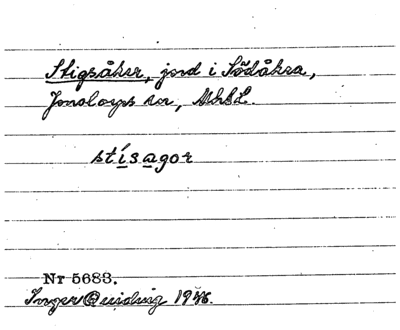 Stigsåker, jord i Södåkra,
Jonstorps sn, MhbL.
stísagor
Nr 5683.
Inger Quiding 1946.